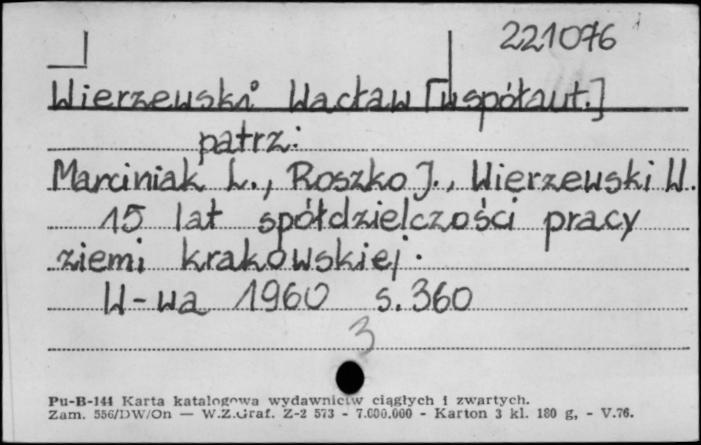 221076
Wierzewski Wacław [współaut.]
patrz:
Marciniak L., Roszko J., Wierzewski W.
15 lat spółdzielczości pracy
ziemi krakowskiej.
W-wa 1960 s. 360
3
Pu-B-144 Karta katalogowa wydawnictw ciągłych i zwartych.
Zam. 556/DW/On — W.Z.Graf. Z-2 573 - 7.000.000 - Karton 3 kl. 180 g, - V.76.